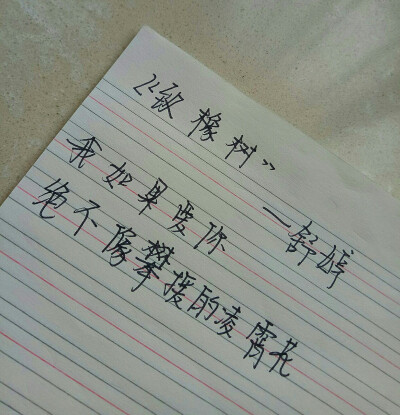 《致橡树》
—舒婷
我如果爱你
绝不像攀援的凌霄花